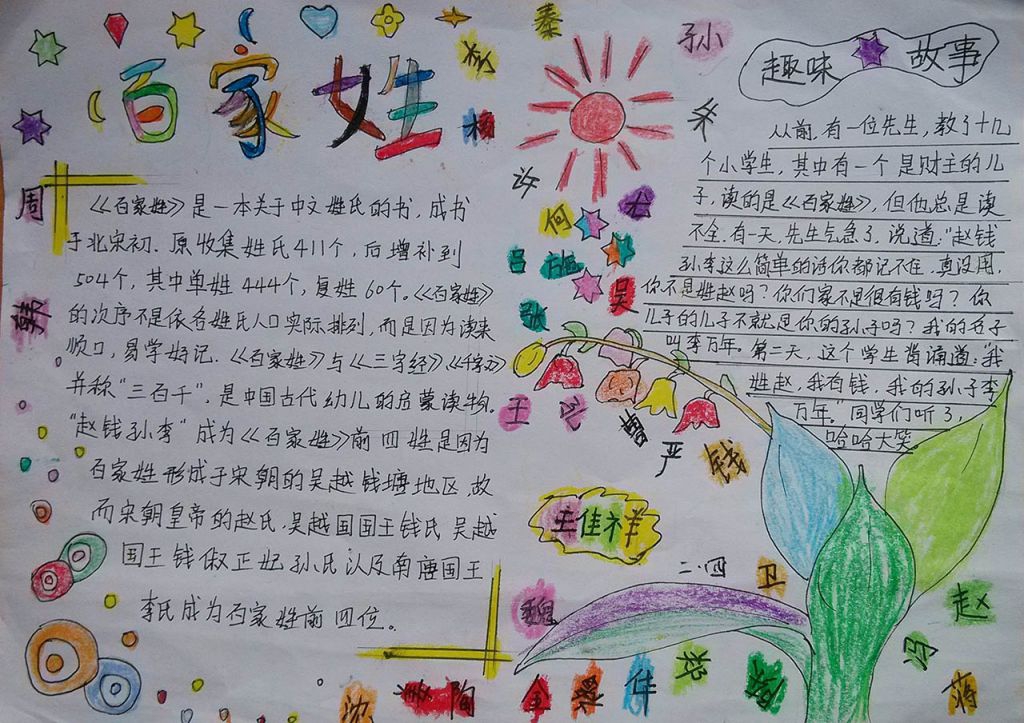 百家姓
《百家姓》是一本关于中文姓氏的书，成书
于北宋初．原收集姓氏411个，后增补到
504个，其中单姓444个，复姓60个。《百家姓》
的次序不是依各姓氏人口实际排列，而是因为读来
顺口，易学好记．《百家姓》与《三字经》《千字文》
并称“三百千”，是中国古代幼儿的启蒙读物．
“赵钱孙李”成为《百家姓》前四姓是因为
百家姓形成于宋朝的吴越钱塘地区，故
而宋朝皇帝的赵氏．吴越国国王钱氏 吴越
国王钱俶正妃孙氏以及南唐国王
李氏成为百家姓前四位。
趣味故事
从前，有一位先生，教了十几
个小学生，其中有一个是财主的儿
子，读的是《百家姓》，但他总是读
不全．有一天，先生气急了，说道：“赵钱
孙李这么简单的话你都记不住，真没用，
你不是姓赵吗？你们家不是很有钱吗？你
儿子的儿子不就是你的孙子吗？我的名字
叫李万年。第二天，这个学生背诵道：“我
姓赵，我有钱，我的孙子李
万年。”同学们听了，
哈哈大笑
秦
孙
朱
杨
周
韩
许
何
尤
吕
施
吴
张
王
曹
严
钱
王佳祥
二．四
卫
魏
赵
冯
蒋
沈
姜
陶
金